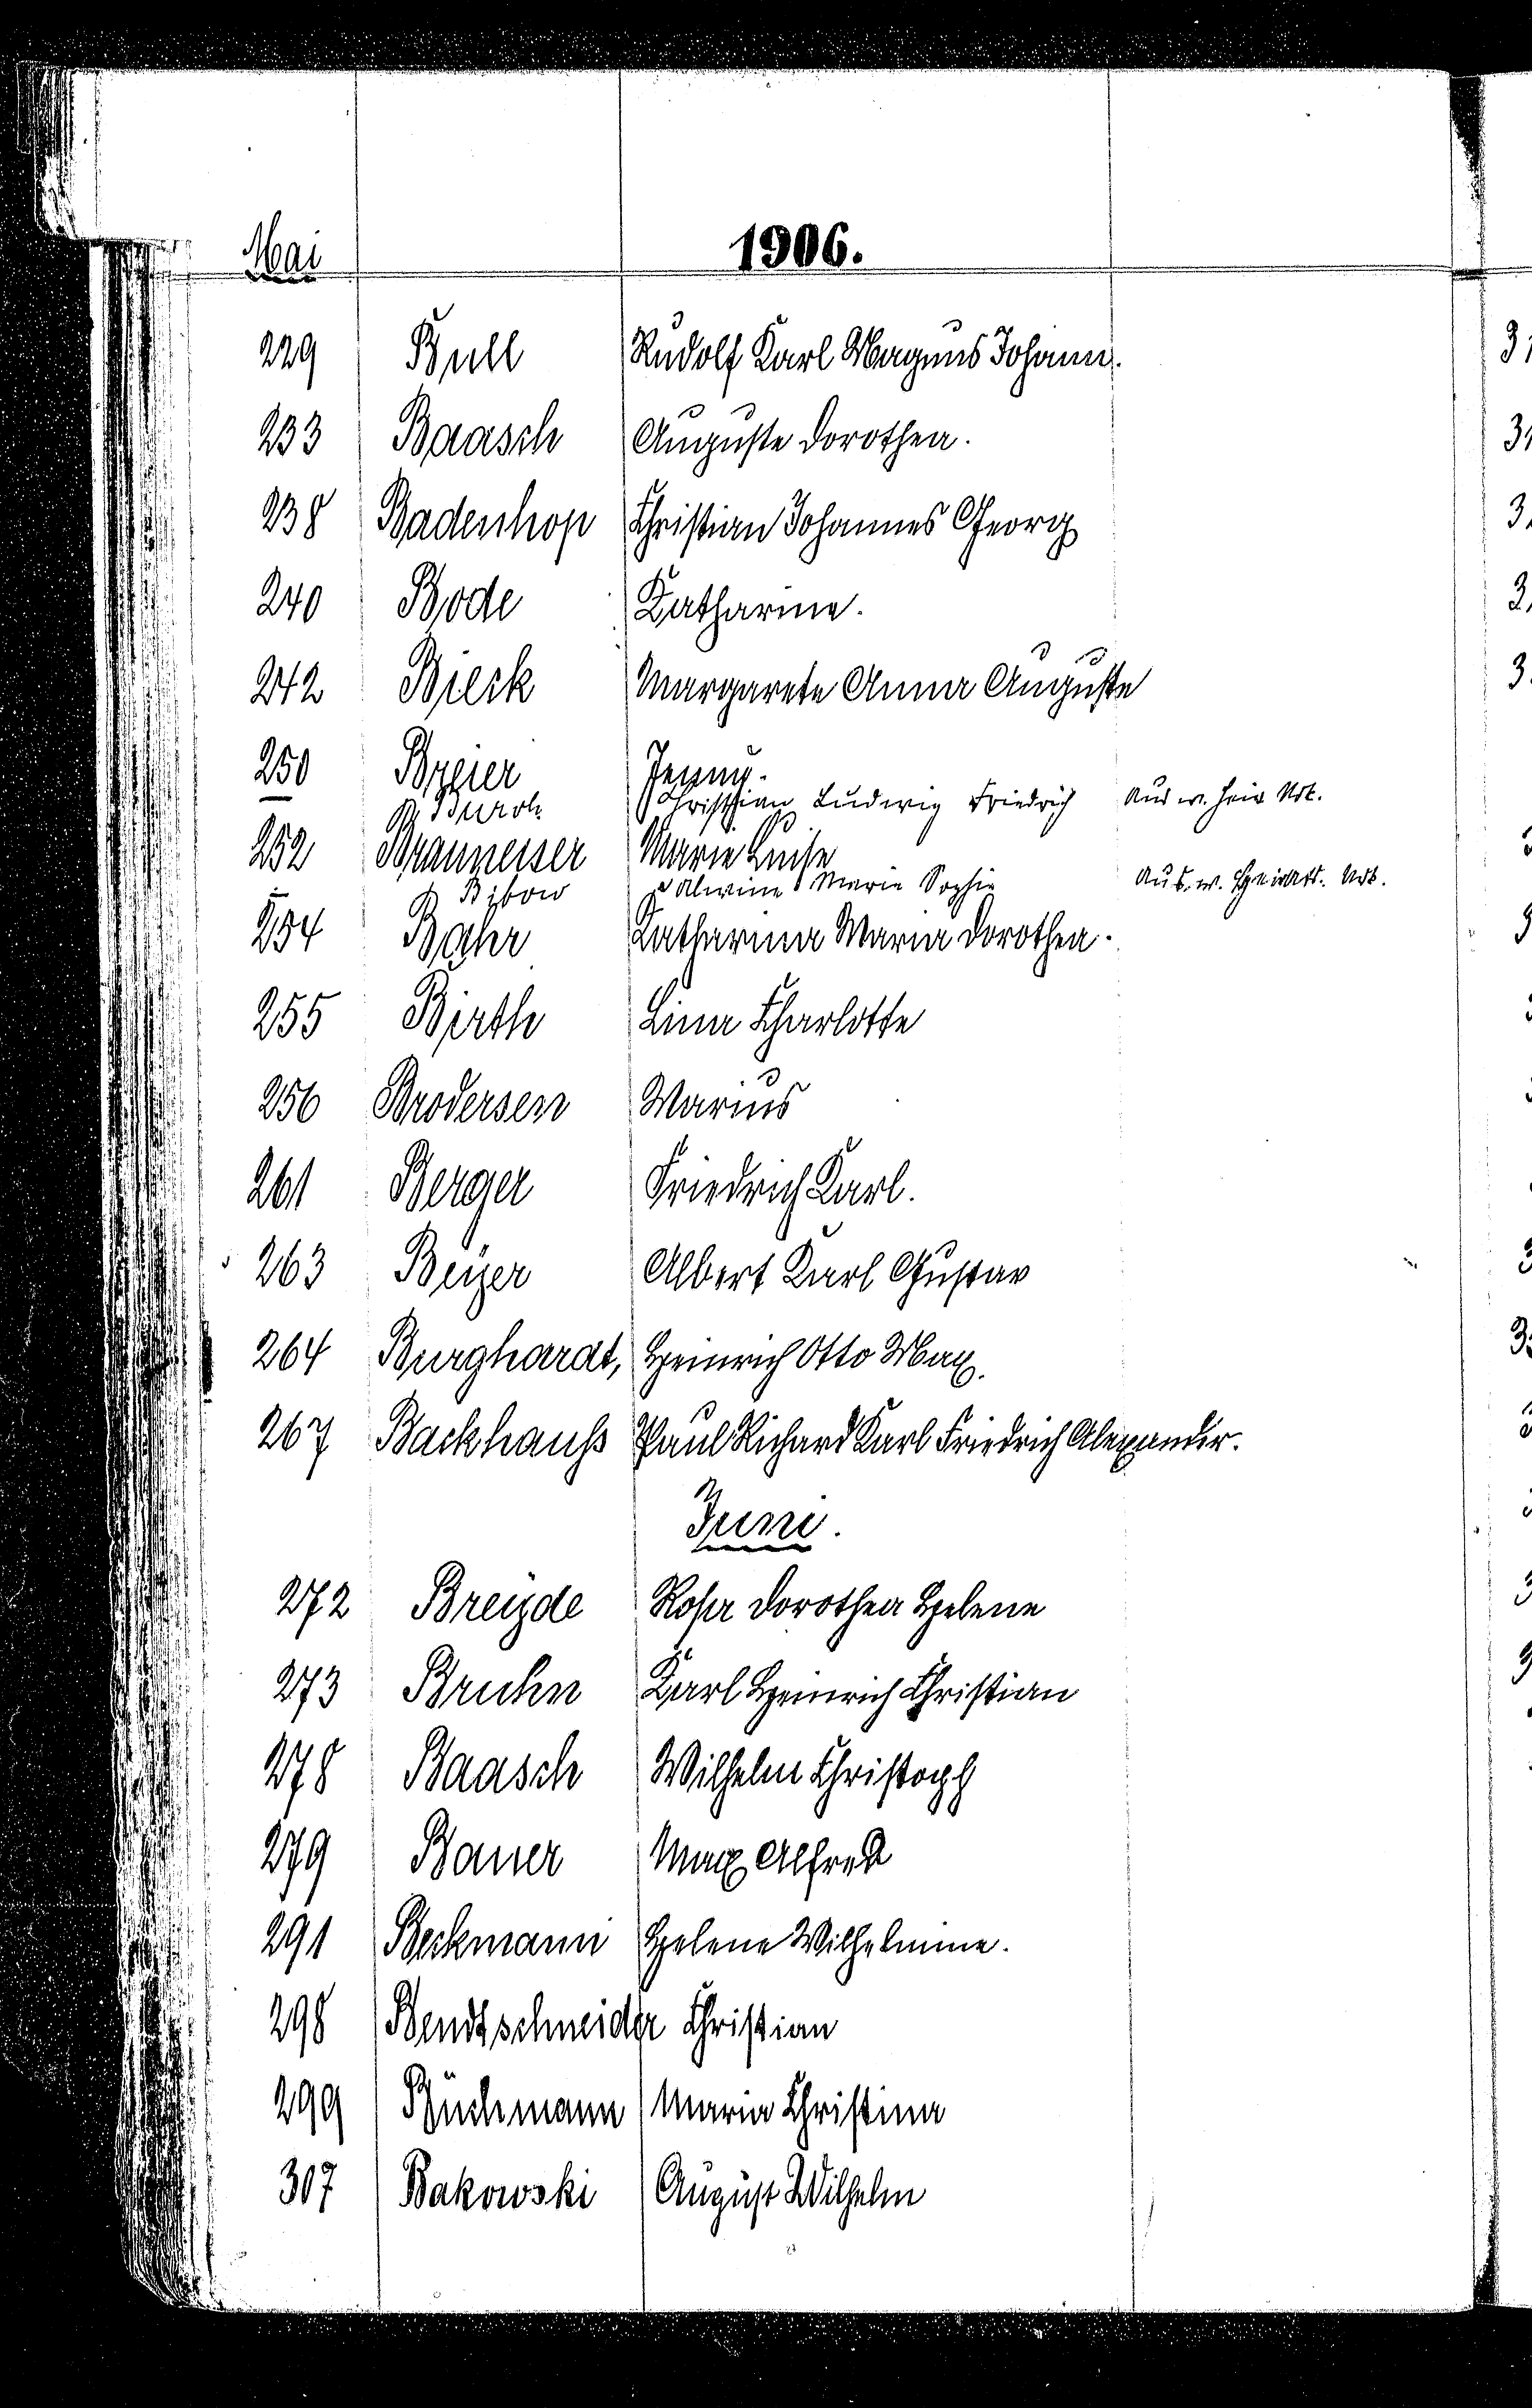 Mai 1906.
229 Bull Rudolf Karl Magnus Johann.
233 Baasch Auguste Dorothea.
238 Badenhop Christian Johannes Georg
240 Bode Katharine.
242 Bieck Margarete Anna Auguste
250 Breier Jenny.
Burch Christian Ludwig Friedrich Aus w. Heir Urk.
252 Branneiser Marie Luise
Bibow Alwine Marie Sophie Aus. w. Heirats. Urk.
254 Bahr Katharina Maria Dorothea.
255 Birth Lina Charlotte
256 Brodersen Marius
261 Berger Friedrich Karl.
263 Beyer Albert Karl Gustav
264 Burghardt, Heinrich Otto Max.
267 Backhauß Paul Richard Karl Friedrich Alexander.
Juni.
272 Breyde Rosa Dorothea Helene
273 Bruhn Karl Heinrich Christian
278 Baasch Wilhelm Christoph
279 Bauer Max Alfred
291 Beckmann Helene Wilhelmine.
298 Bendtschneider Christian
299 Buchmann Maria Christina
307 Bakowski August Wilhelm